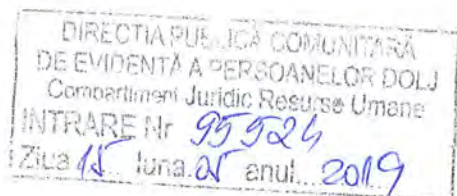 DIRECTIA PUBLICĂ COMUNITARĂ
DE EVIDENTĂ A PERSOANELOR DOLJ
Compartiment Juridic Resurse Umane
INTRARE Nr 95524
Ziua 15 luna 05 anul... 2019